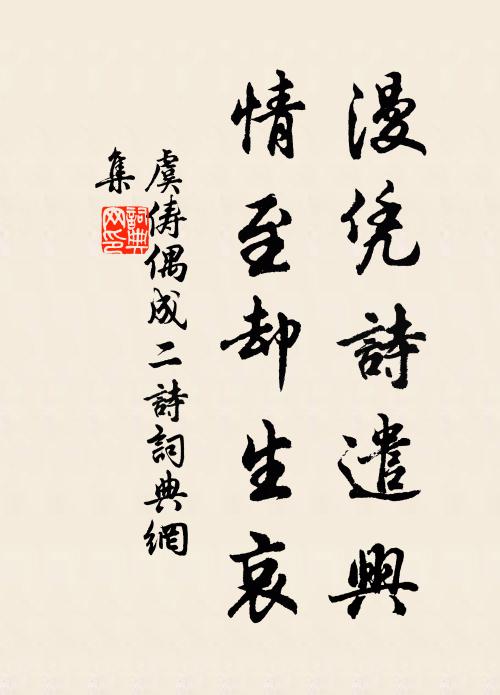 漫凭詩遣興
情至却生哀
虞俦偶成二詩詞典網
集
詞典网印